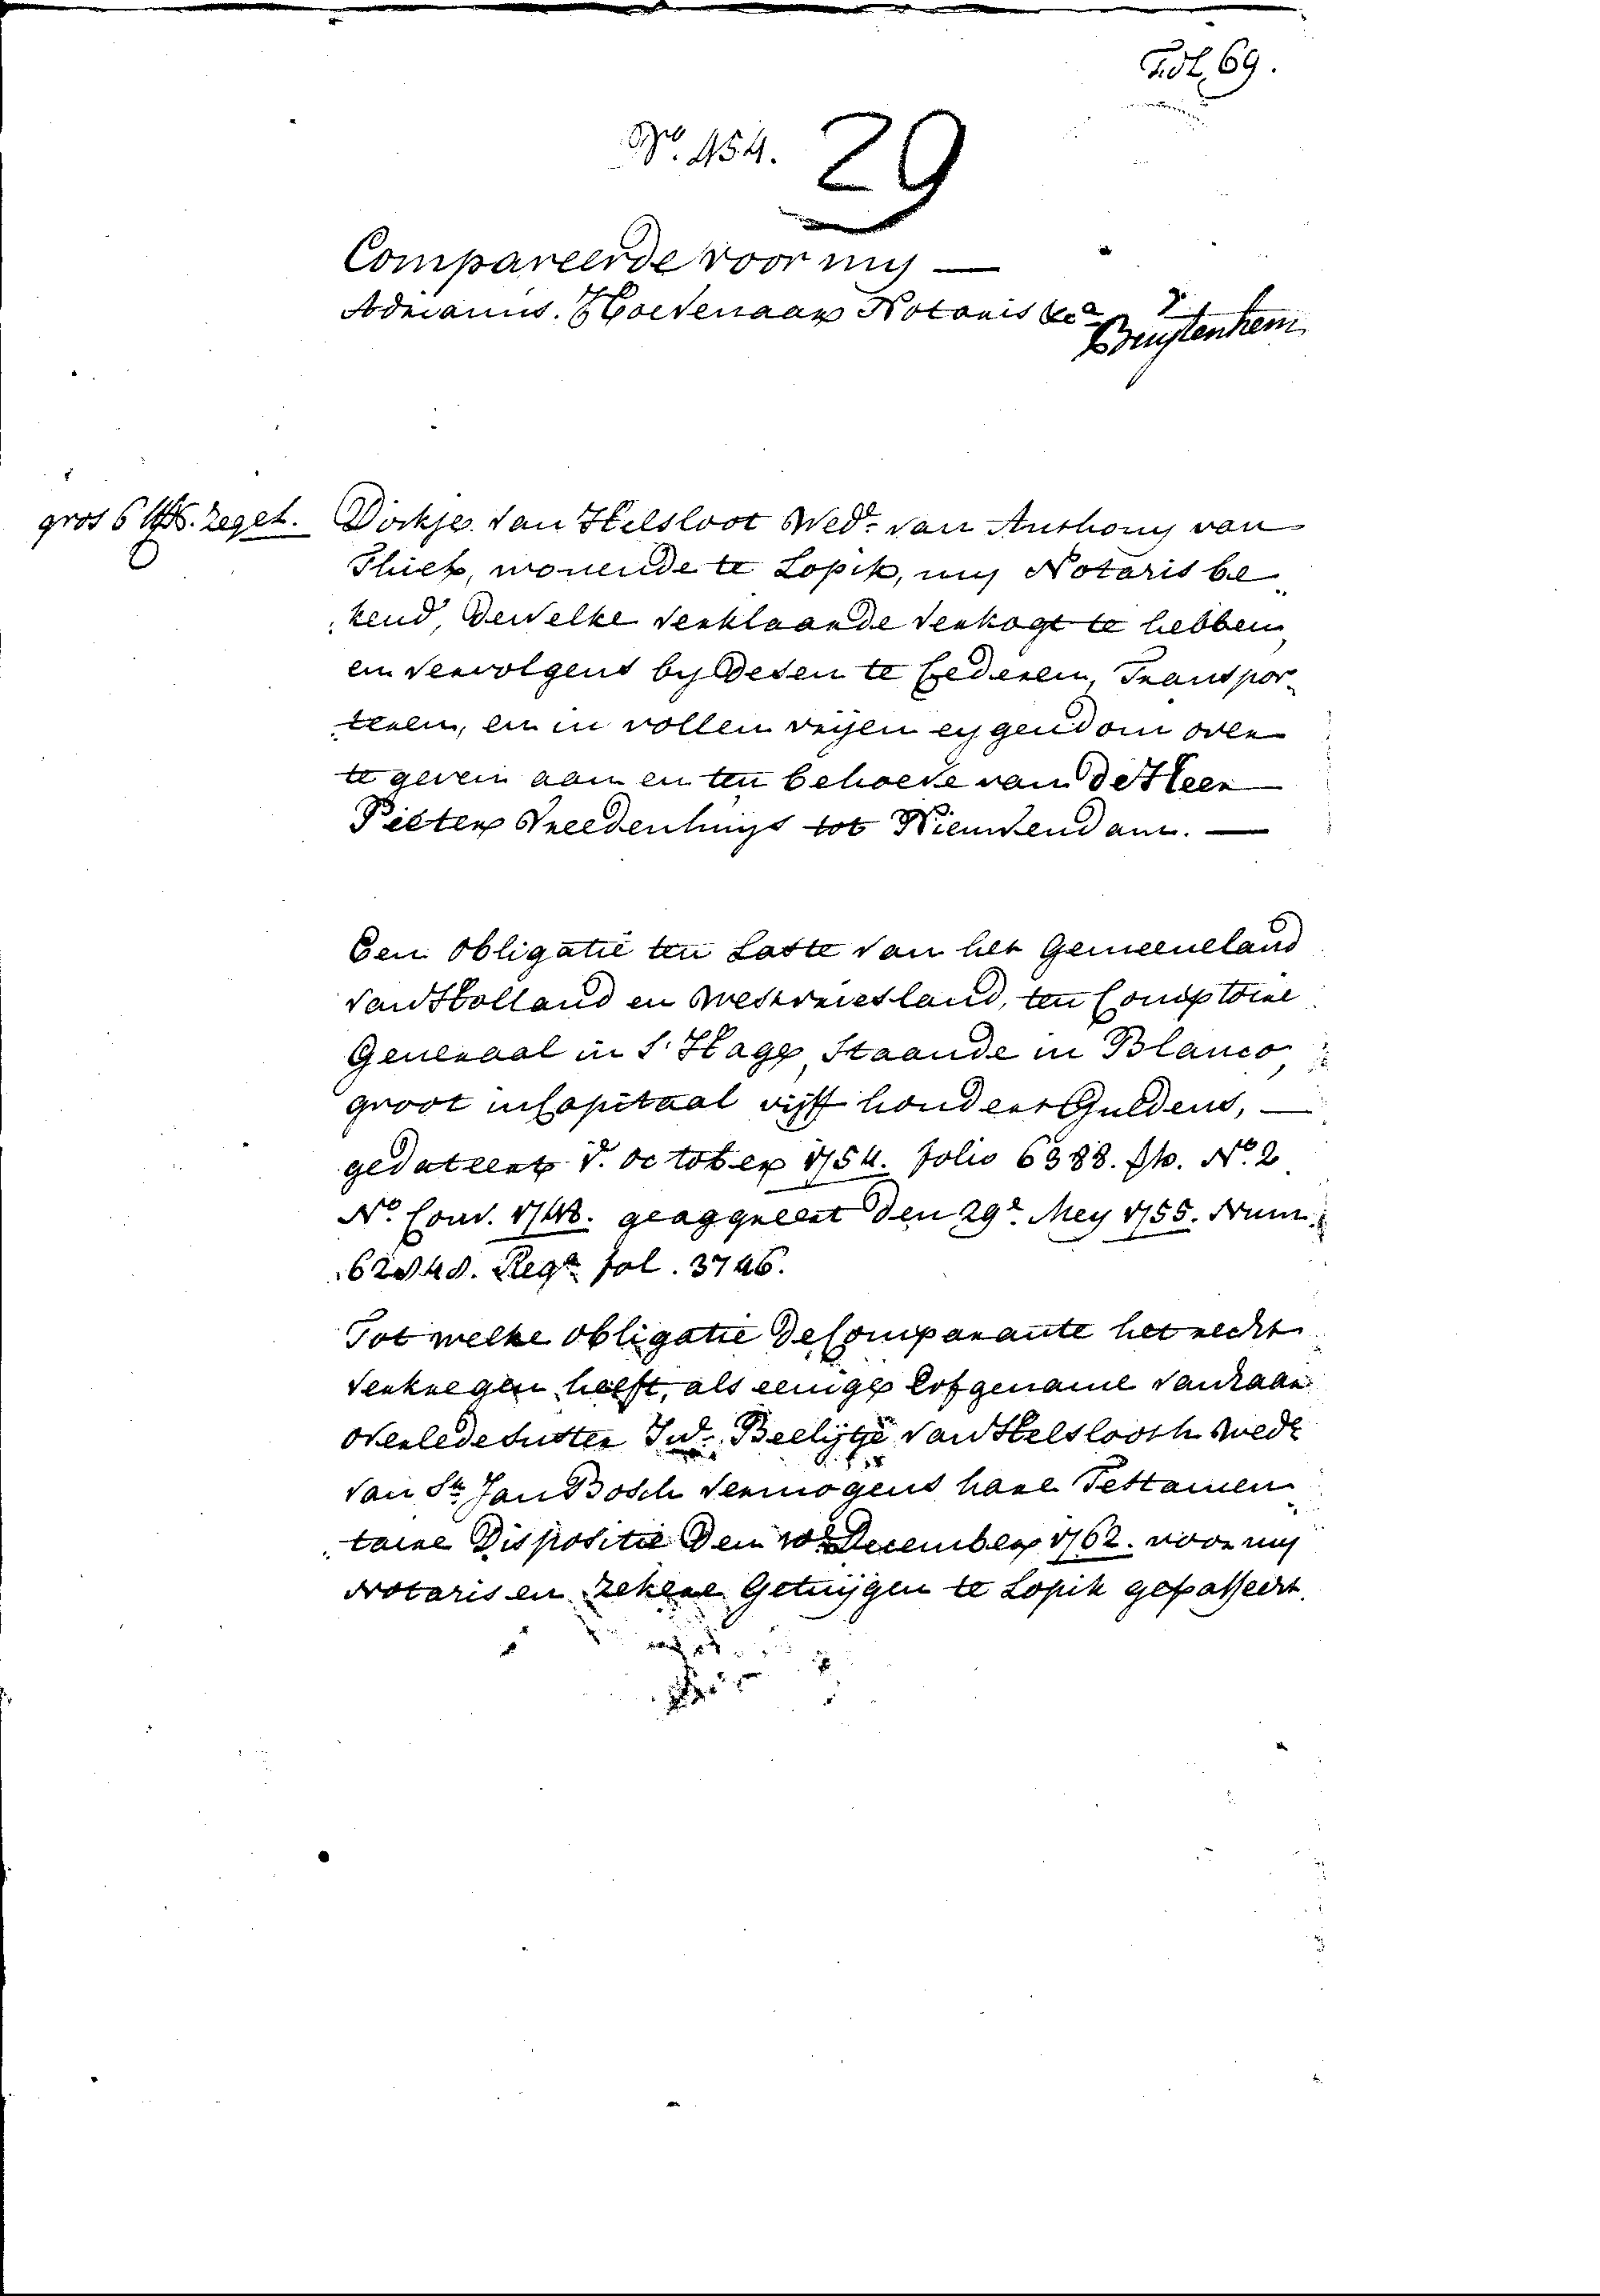 Fol. 69.
No. 454. 29
Compareerde voor mij
Adrianus Hoevenaar Notaris &ca
gros 6 st. Zegel.
Dirkje van Helsloot Wede. van Anthony van
Thiel, wonende te Lopik, mij Notaris be
kend, Dewelke verklaarde verkogt te hebben
en vervolgens by desen te Cederen, Transpor
teren, en in vollen vrijen eygendom over
te geven aan en ten behoeve van de Heer
Pieter Vreedenhuys tot Nieuwendam.
Een Obligatie ten Laste van het Gemeeneland
van Holland en Westvriesland, ten Comptoire
Generaal in S. Hage, Staande in Blanco,
groot in Capitaal vijff hondert Guldens,
gedateert 1. October 1754. folio 6388. No. 2
No. Conv. 1748. geaggreert den 29e. Mey 1755. Num.
Regt. fol. 3746.
Tot welke obligatie de Comparante het recht
verkregen heeft, als eenige Erfgename van haar
overlede suster Juf. Beeligje van Helslooth Wede
van Sr. Jan Bosch vermogens hare Testamen
taire Dispositie Den 10e December 1762. voor mij
Notaris en zekere Getuijgen te Lopik gepasseert.